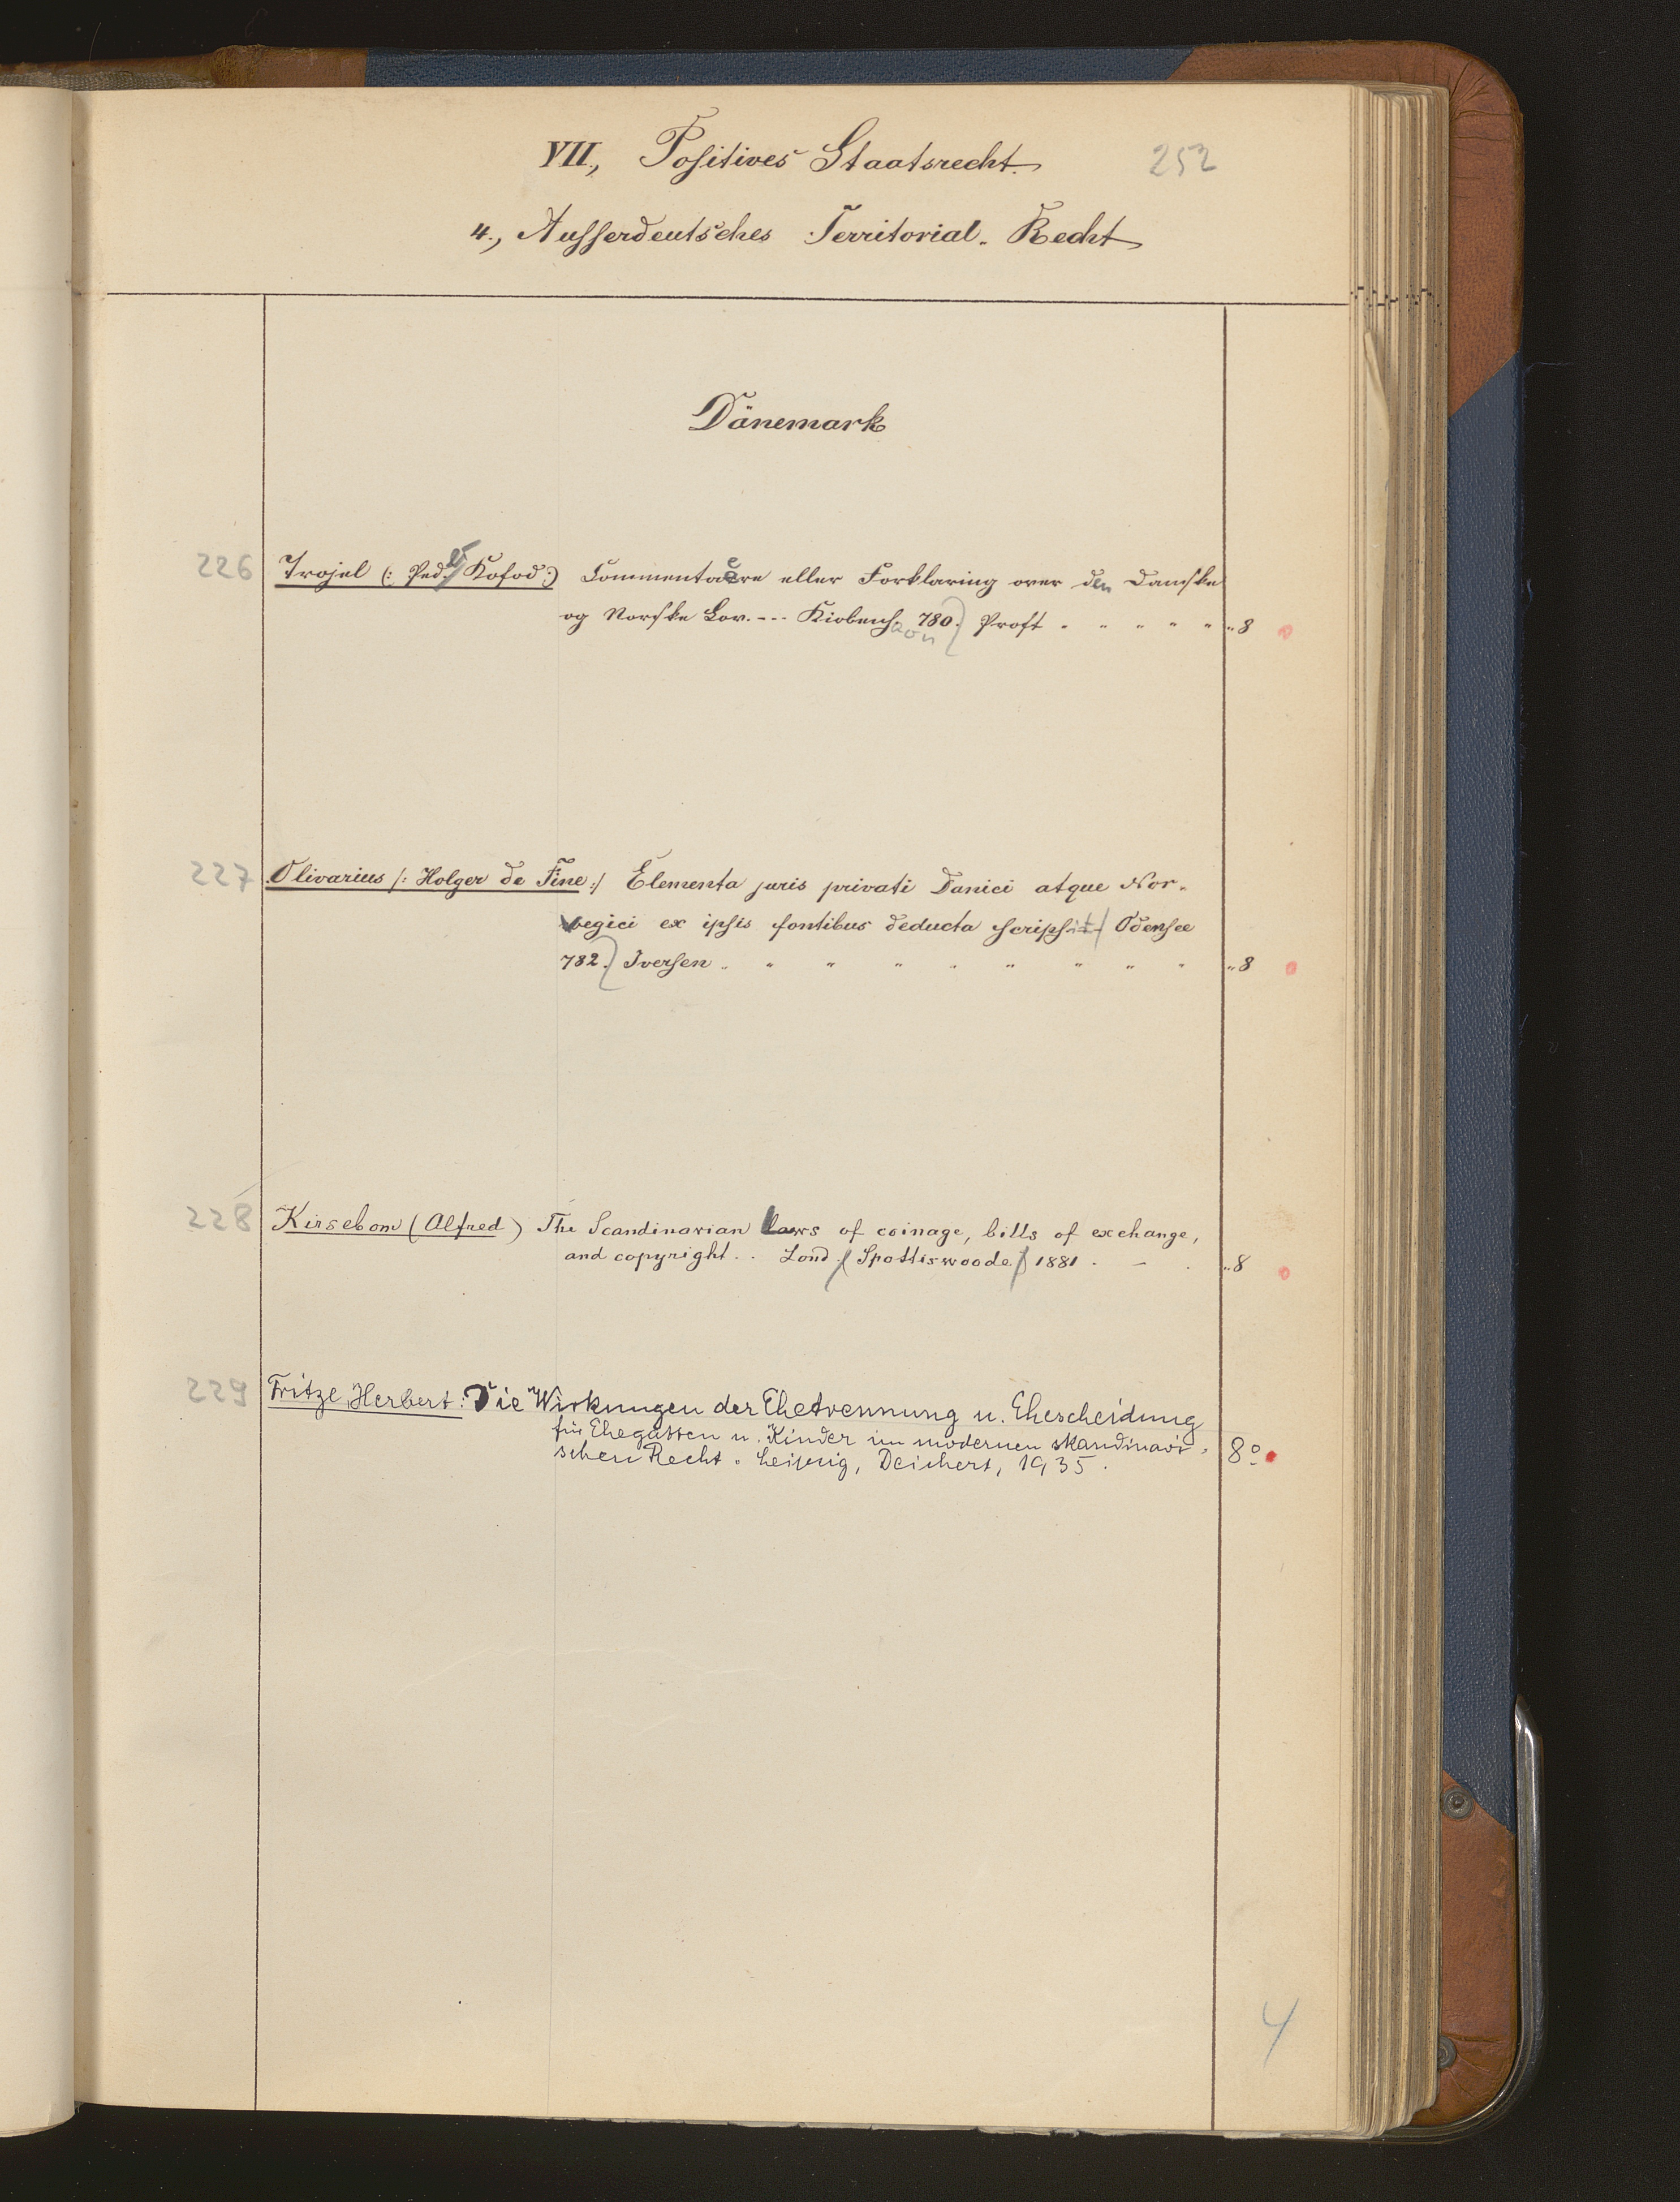 VII., Positives Staatsrecht.
252
4., Ausserdeutsches Territorial-Recht
Dänemark
226 Trojel (: Ped. Kofod:) Commentaere eller Forklaring over den Danske
og Norske Lov. --- Kiobenh. 780. Proft " " " " " "8
227 Olivarius /: Holger de Fine :/ Elementa juris privati Danici atque Nor-
vegici ex ipsis fontibus deducta scripsit Odensee
782. Iversen " " " " " " " " " "8
228 Kirsebom (Alfred) The Scandinavian laws of coinage, bills of exchange,
and copyright. . Lond. (Spottiswoode) 1881 . - . "8
229 Fritze, Herbert: Die Wirkungen der Ehetrennung u. Ehescheidung
für Ehegatten u. Kinder im modernen skandinavi-
schen Recht. Leipzig, Deichert, 1935. 8o
4